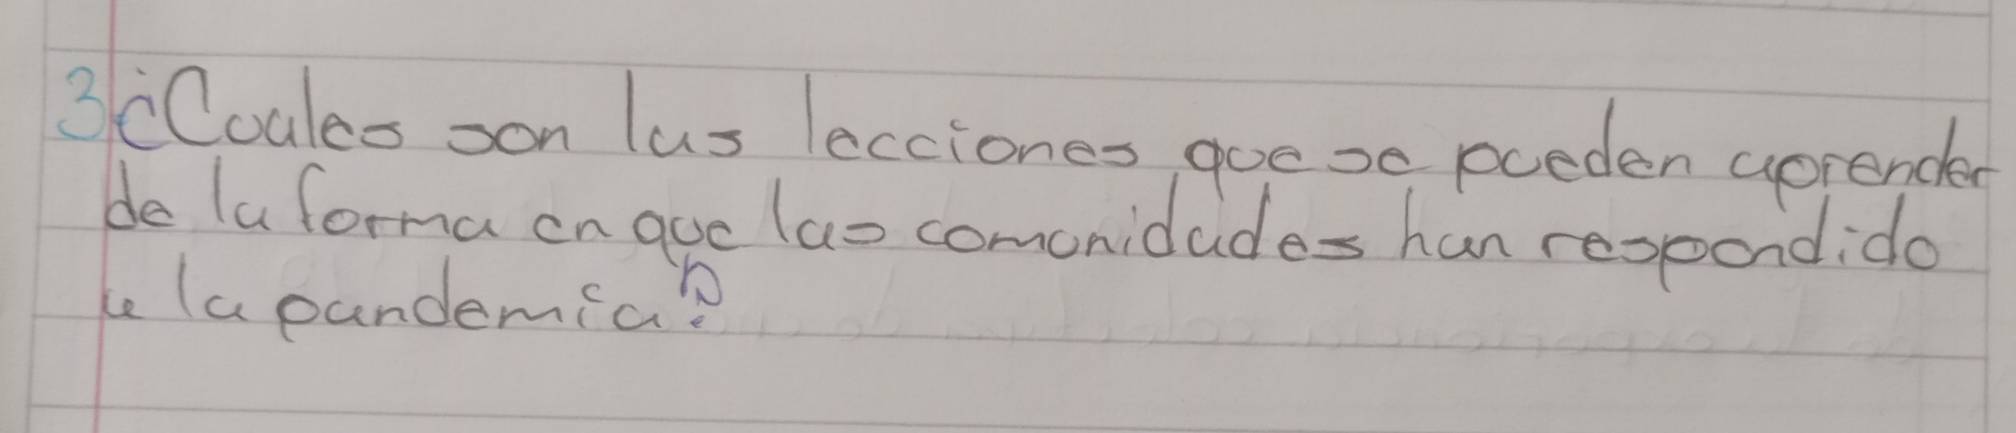 3 ¿Cuales son las lecciones que se pueden aprender
de la forma en que las comunidades han respondido
a la pandemia?